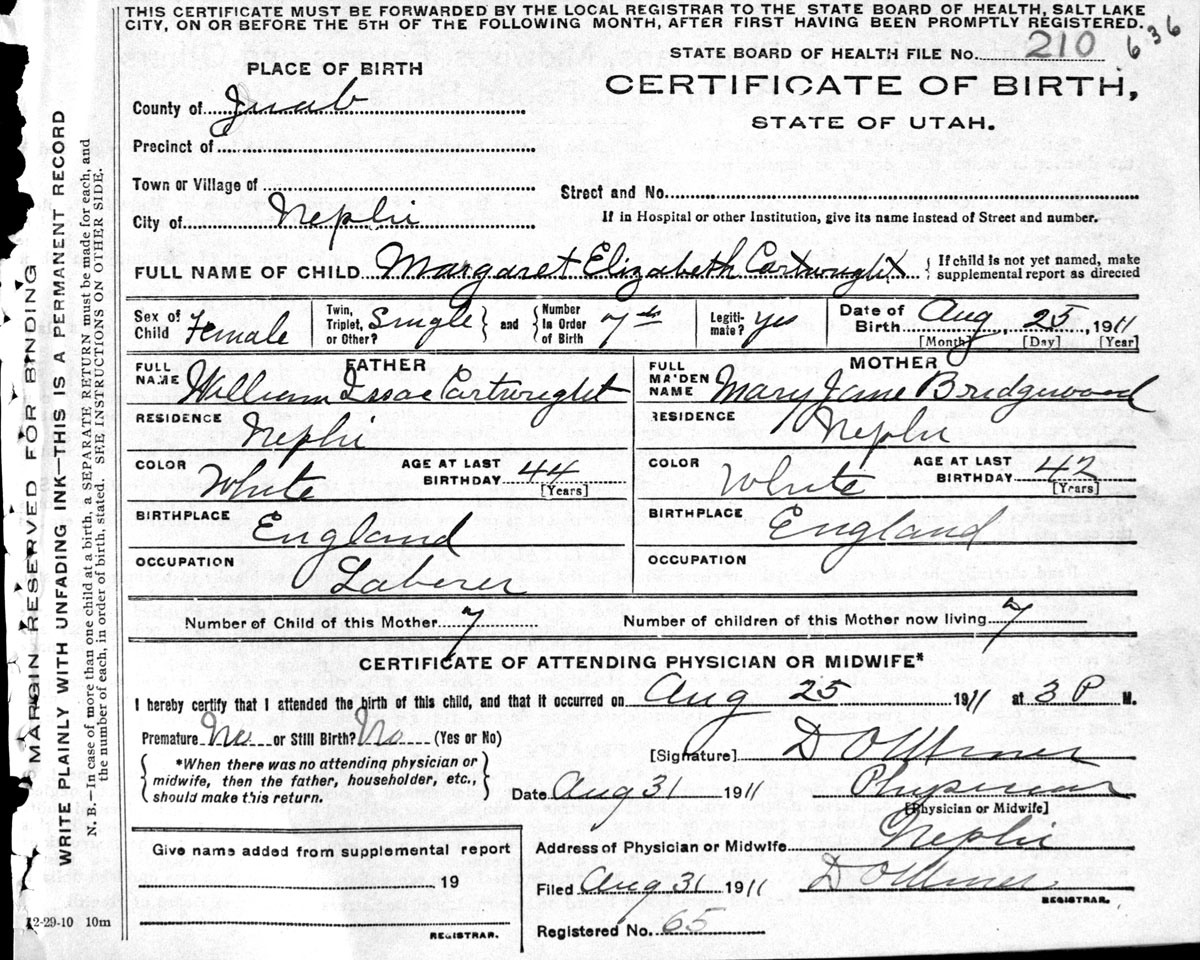 THIS CERTIFICATE MUST BE FORWARDED BY THE LOCAL REGISTRAR TO THE STATE BOARD OF HEALTH, SALT LAKE
CITY, ON OR BEFORE THE 5TH OF THE FOLLOWING MONTH, AFTER FIRST HAVING BEEN PROMPTLY REGISTERED.
STATE BOARD OF HEALTH FILE No. 210 636
PLACE OF BIRTH
CERTIFICATE OF BIRTH,
STATE OF UTAH.
County of Juab
Precinct of
Town or Village of
Street and No.
City of Nephi
If in Hospital or other Institution, give its name instead of Street and number.
FULL NAME OF CHILD Margaret Elizabeth Cartwright { If child is not yet named, make
supplemental report as directed
Sex of Child Female
Twin, Triplet, or Other? Single } and { Number In Order of Birth 7th
Legitimate? Yes
Date of Birth Aug, 25, 1911
[Month] [Day] [Year]
FATHER
FULL NAME William Issac Cartwright
RESIDENCE Nephi
COLOR White
AGE AT LAST BIRTHDAY 44
[Years]
BIRTHPLACE England
OCCUPATION Laborer
MOTHER
FULL MAIDEN NAME Mary Jane Bridgewood
RESIDENCE Nephi
COLOR White
AGE AT LAST BIRTHDAY 42
[Years]
BIRTHPLACE England
OCCUPATION
Number of Child of this Mother 7
Number of children of this Mother now living 7
CERTIFICATE OF ATTENDING PHYSICIAN OR MIDWIFE*
I hereby certify that I attended the birth of this child, and that it occurred on Aug 25 1911 at 3 P M.
Premature No or Still Birth? No (Yes or No)
*When there was no attending physician or
midwife, then the father, householder, etc.,
should make this return.
[Signature] D O
Date Aug 31 1911 Physician
[Physician or Midwife]
Address of Physician or Midwife Nephi
Filed Aug 31 1911 D O
REGISTRAR.
Registered No. 65
Give name added from supplemental report
19
REGISTRAR.
12-29-10 10m
MARGIN RESERVED FOR BINDING
WRITE PLAINLY WITH UNFADING INK—THIS IS A PERMANENT RECORD
N. B.—In case of more than one child at a birth, a SEPARATE RETURN must be made for each, and
the number of each, in order of birth, stated. SEE INSTRUCTIONS ON OTHER SIDE.